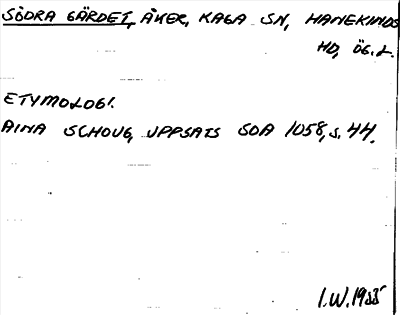 SÖDRA GÄRDET, ÅKER, KAGA SN, HANEKINDS
HD, ÖG.L.
ETYMOLOGI.
AINA SCHOUG, UPPSATS SOA 1058, S. 44.
I.W.